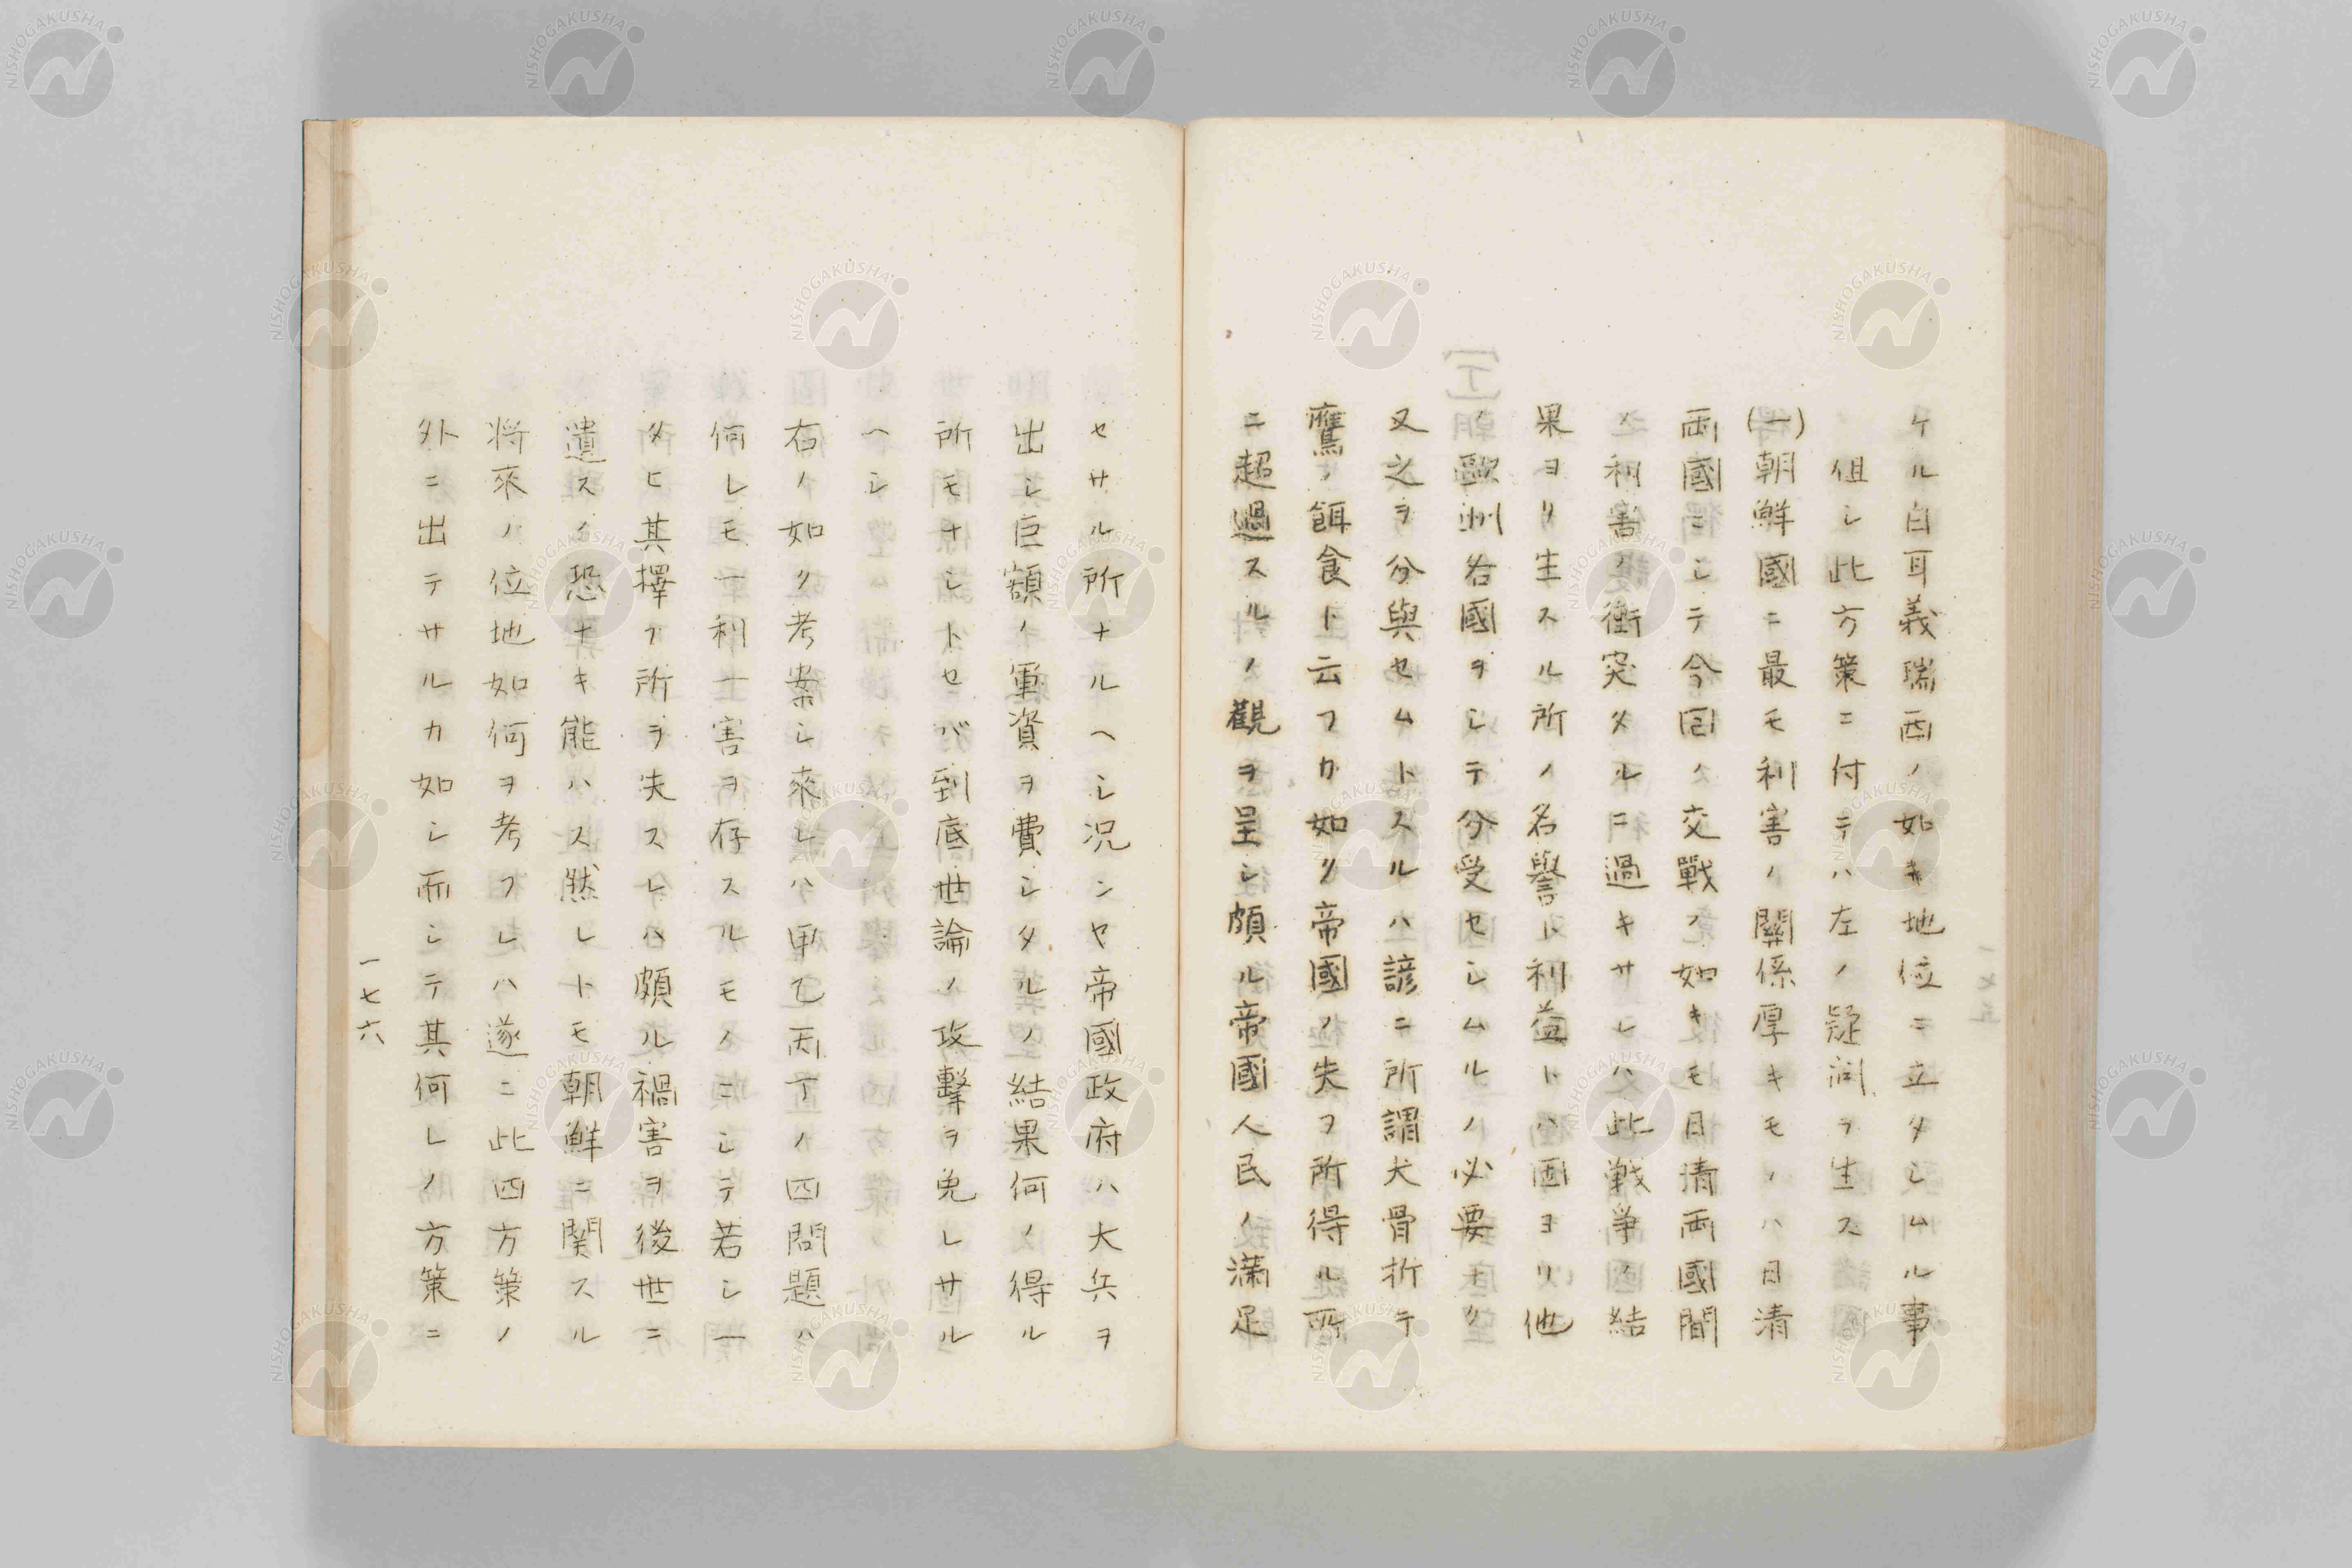 ケル白耳義瑞西ノ如キ地位ニ立タシムル事
但シ此方策ニ付テハ左ノ疑问ヲ生ス
(一)朝鮮國ニ最モ利害ノ關係厚キモノハ日清
両國ニシテ今回ノ交戰ノ如キモ日清両國間
ノ利害ノ衝突タルニ過キサレハ此戦争ノ結
果ヨリ生スル所ノ名譽ト利益トハ固ヨリ他
ノ歐洲各國ヲシテ分受セシムルノ必要ナク
又之ヲ分與セムトスルハ諺ニ所謂犬骨折テ
鷹ノ餌食ト云フカ如ク帝國ノ失フ所得ル所
ニ超過スルノ觀ヲ呈シ頗ル帝國人民ノ満足
セサル所ナルヘシ況ンヤ帝國政府ハ大兵ヲ
出シ巨額ノ軍資ヲ費シタルノ結果何ノ得ル
所モナシトセバ到底世論ノ攻擊ヲ免レサル
ヘシ
右ノ如ク考案シ來レハ甲乙丙丁ノ四問題ハ
何レモ一利一害ヲ存スルモノニシテ若シ一
タヒ其擇フ所ヲ失スレハ頗ル禍害ヲ後世ニ
遺スノ恐ナキ能ハス然レトモ朝鮮ニ関スル
将來ノ位地如何ヲ考フレハ遂ニ此四方策ノ
外ニ出テサルカ如シ而シテ其何レノ方策ニ
一七六
NISHOGAKUSHA